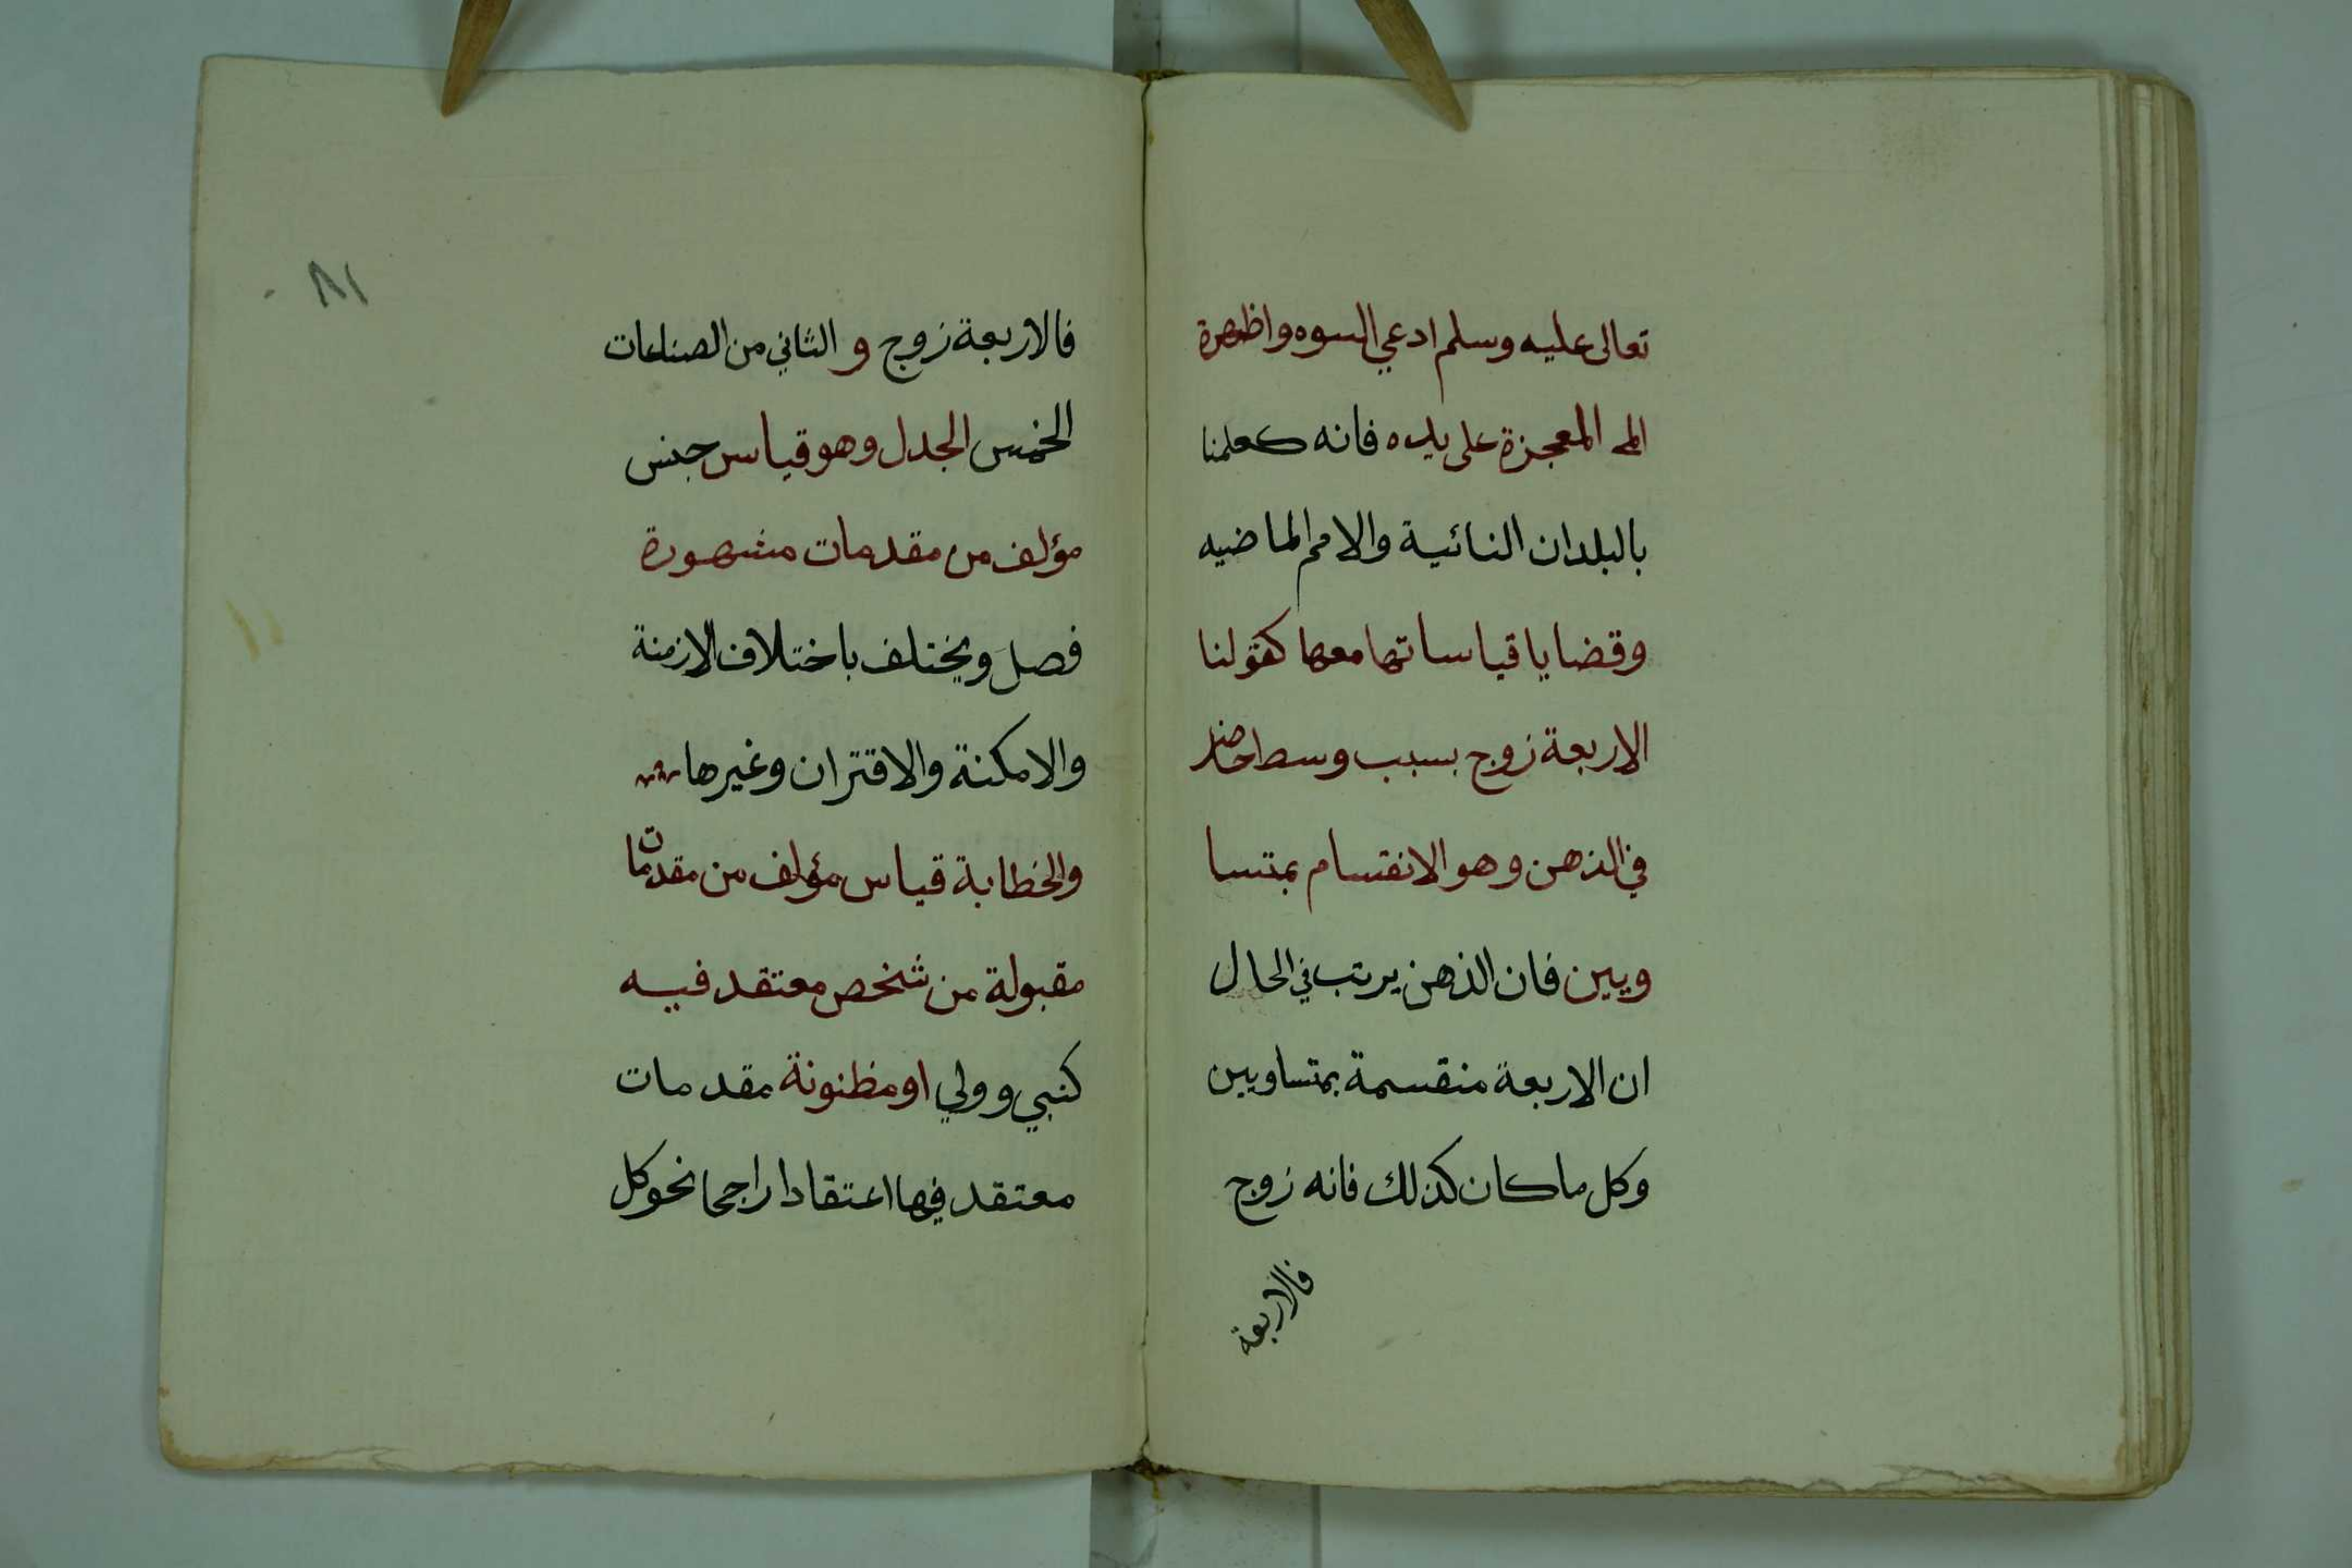 تعالى عليه وسلم ادعي السوه واظهرة
المعجزة على يده فانه كعلمنا
بالبلدان النائية والامم الماضيه
وقضايا قياساتها معها كقولنا
الاربعة زوج بسبب وسط حاضر
في الذهن وهو الانقسام بمتسا
ويين فان الذهن يرتب في الحال
ان الاربعة منقسمة بمتساويين
وكل ما كان كذلك فانه زوج
فالاربعة
٨١
فالاربعة زوج و الثاني من الصناعات
الخمس الجدل وهو قياس جنس
مؤلف من مقدمات مشهورة
فصل ويختلف باختلاف الازمنة
والامكنة والاقتران وغيرها
والخطابة قياس مؤلف من مقدمات
مقبولة من شخص معتقد فيه
كنبي وولي او مظنونة مقدمات
معتقد فيها اعتقادا راجحا نحو كل